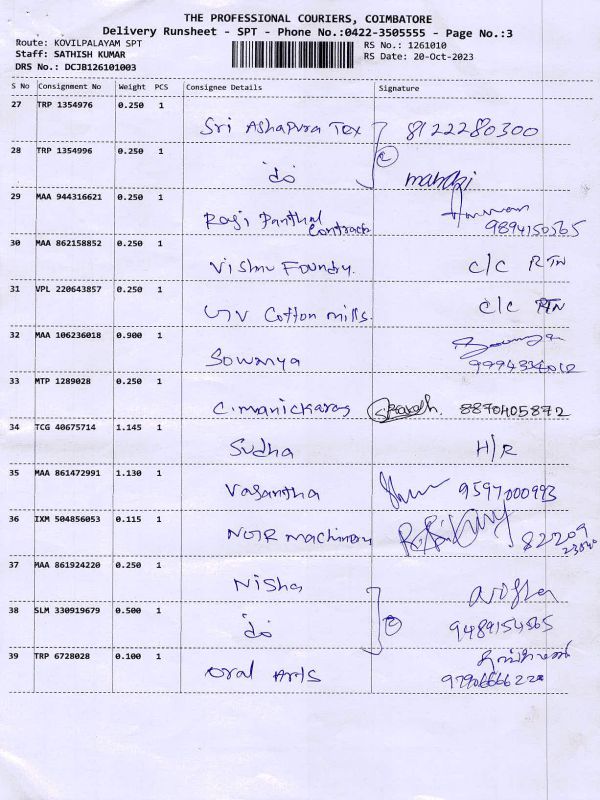 THE PROFESSIONAL COURIERS, COIMBATORE
Delivery Runsheet - SPT - Phone No.:0422-3505555 - Page No.:3
Route: KOVILPALAYAM SPT RS No.: 1261010
Staff: SATHISH KUMAR RS Date: 20-Oct-2023
DRS No.: DCJB126101003
S No Consignment No Weight PCS Consignee Details Signature
27 TRP 1354976 0.250 1
Sri Ashapura Tex 8122280300
28 TRP 1354996 0.250 1
do
29 MAA 944316621 0.250 1
Panthal
Contracts 9894150565
30 MAA 862158852 0.250 1
Vishnu Foundry. c/c RTN
31 VPL 220643857 0.250 1
GV Cotton mills. c/c RTN
32 MAA 106236018 0.900 1
Sowmya 9994334012
33 MTP 1289028 0.250 1
C. 8870405872
34 TCG 40675714 1.145 1
Sudha H/R
35 MAA 861472991 1.130 1
Vasantha 9597000993
36 IXM 504856053 0.115 1
Machinery 82209
37 MAA 861924220 0.250 1
Nisha
38 SLM 330919679 0.500 1
do 9489154565
39 TRP 6728028 0.100 1
Oral Arts